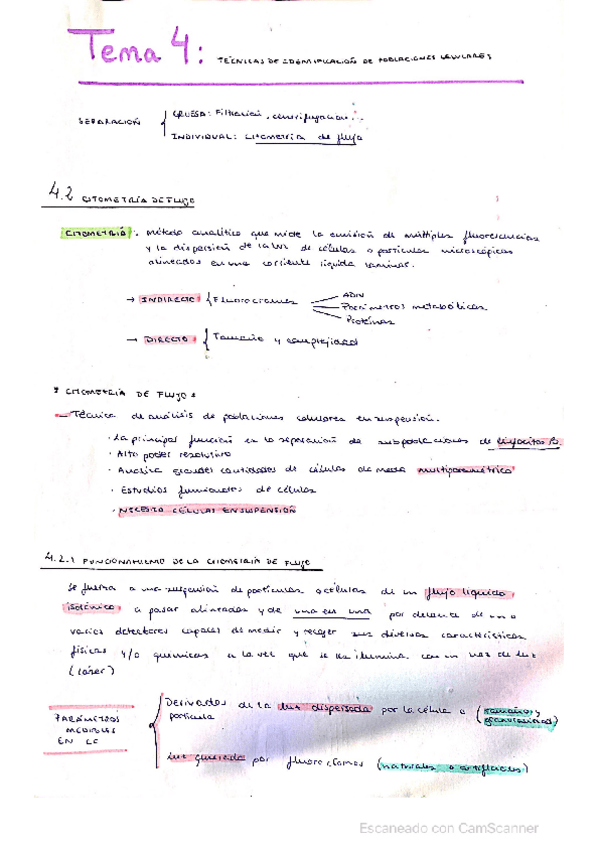 Tema 4: TÉCNICAS DE IDENTIFICACIÓN DE POBLACIONES CELULARES
SEPARACIÓN
GRUESA: Filtración, centrifugación...
INDIVIDUAL: Citometría de flujo
4.2 CITOMETRÍA DE FLUJO
CITOMETRÍA: método analítico que mide la emisión de múltiples fluorescencias
y la dispersión de la luz de células o partículas microscópicas
alineados en una corriente líquida laminar.
→ INDIRECTO: Fluorocromos
ADN
Parámetros metabólicos
Proteínas
→ DIRECTO: Tamaño y complejidad
CITOMETRÍA DE FLUJO:
Técnica de análisis de poblaciones celulares en suspensión.
· La principal función es la separación de subpoblaciones de linfocitos B.
· Alto poder resolutivo
· Analiza grandes cantidades de células de modo multiparamétrico
· Estudios funcionales de células
· NECESITA CÉLULAS EN SUSPENSIÓN
4.2.1 FUNCIONAMIENTO DE LA CITOMETRÍA DE FLUJO
Se fuerza a una suspensión de partículas o células de un flujo líquido
isotónico a pasar alineadas y de una en una por delante de uno o
varios detectores capaces de medir y recoger sus diversas características
físicas y/o químicas a la vez que se les ilumina con un haz de luz
(láser)
PARÁMETROS
MEDIBLES
EN
Derivados de la luz dispersada por la célula o (tamaño y
partícula granularidad)
Luz generada por fluorocromos (naturales o artificiales)
Escaneado con CamScanner